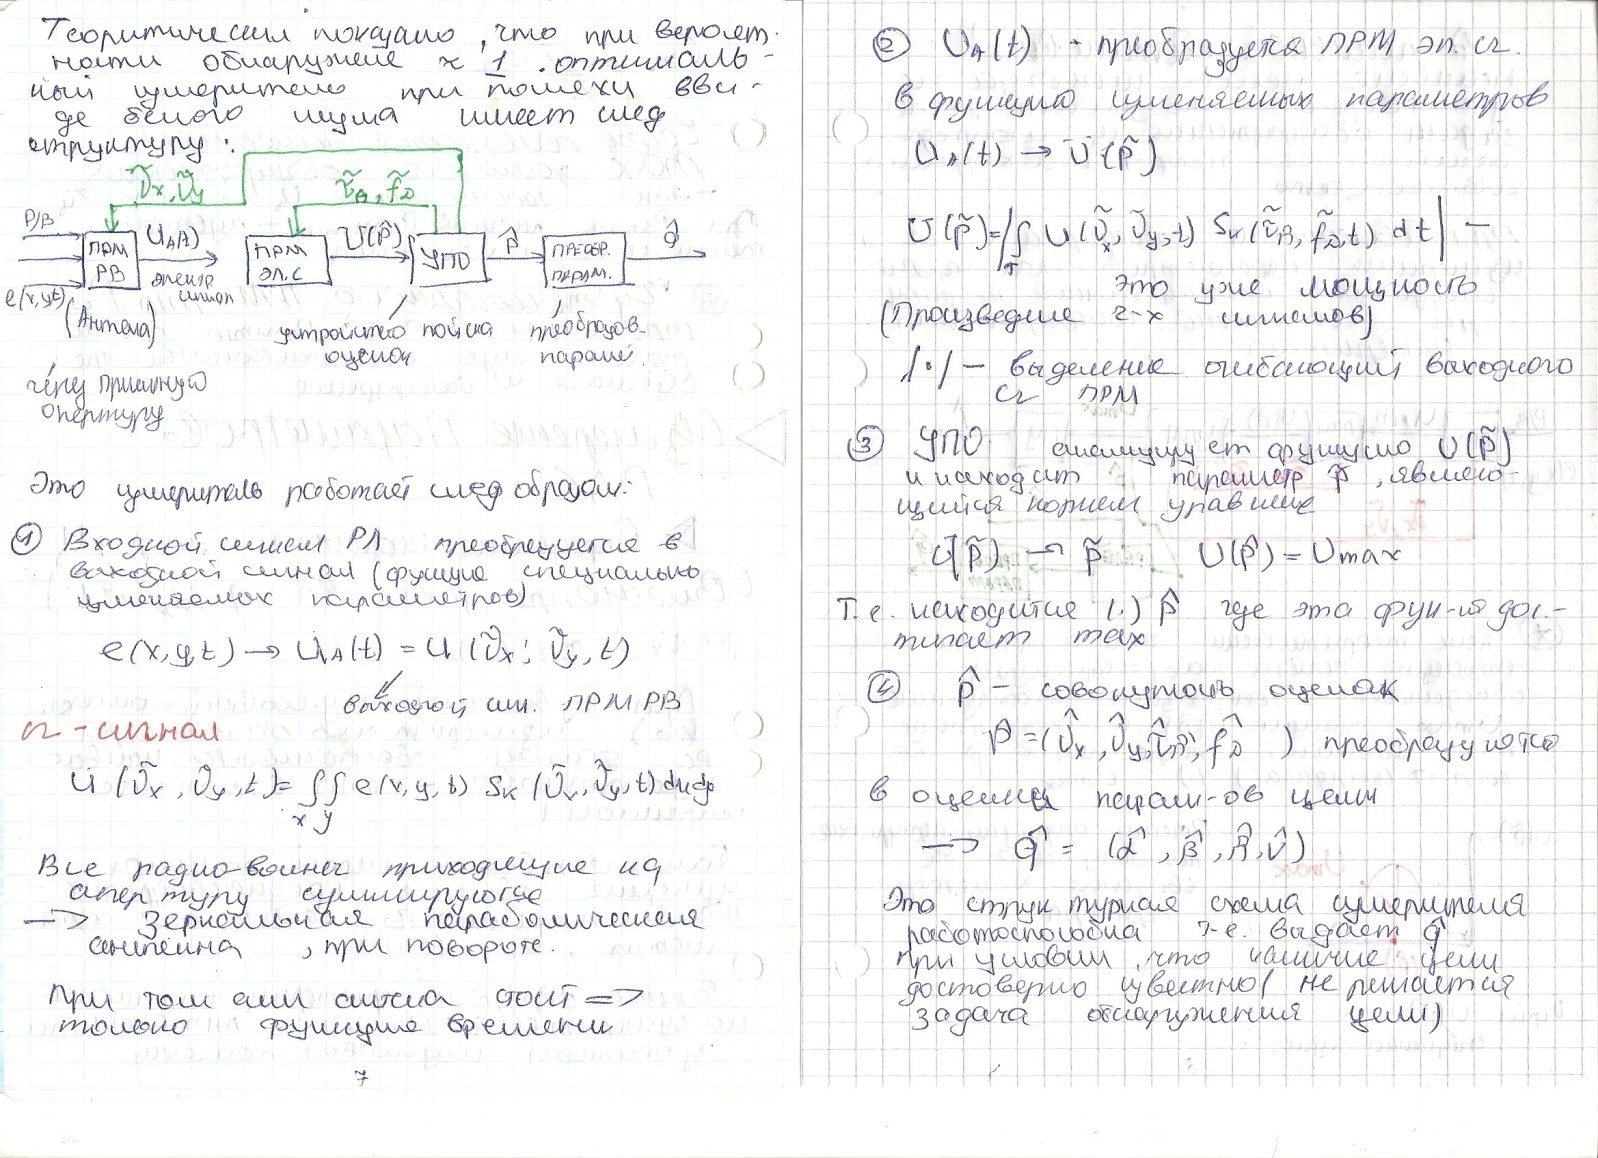 Теоритически показано, что при вероят-
ности обнаружение ≈ 1 оптималь-
ный измеритель при помехи вви-
де белого шума имеет след
структуру:
ṽx, ṽy
τ̃д, f̃д
Р/В
ПРМ
РВ
UА(t)
электр
сигнал
ПРМ
ЭЛ.С
U(p̃)
УПО
p̂
ПРЕОБР.
ПАРАМ.
q̂
e(x,y,t)
(Антена)
устройство поиска
оценок
преобразов.
парам.
через приемную
опертуру
Это измеритель работает след образом:
① Входной сигнал РЛ преобразуется в
выходной сигнал (функцию специально
изменяемых параметров)
e(x,y,t) → UA(t) = U(ṽx; ṽy, t)
выходной сигн. ПРМ РВ
сг - сигнал
U(ṽx, ṽy, t) = ∫∫ e(x,y,t) Sк(ṽx, ṽy, t) dxdy
x y
Все радио-волны приходящие на
апертуру суммируются
→ Зеркальная параболическая
антенна, при повороте.
При том если антена стоит ⇒
только функцие времени
7
② UА(t) - преобразуется ПРМ эл. сг.
в функцию изменяемых параметров
UА(t) → U(p̃)
U(p̃) = |∫ U(ṽx, ṽy, t) Sк(τ̃д, f̃д, t) dt| —
T
Это уже мощность
(Произведение 2-х сигналов)
|·| — выделение огибающий выходного
сг ПРМ
③ УПО анализирует функцию U(p̃)
и находит параметр p̂, являю-
щийся корнем уравние
U(p̃) → p̃ U(p̂) = Umax
Т.е. находится (.) p̂ где эта фун-ия дос-
тигает max
④ p̂ — совокупность оценок
p̂ = (v̂x, v̂y, τ̂д, f̂д) преобразуются
в оценки парам-ов цели
→ q̂ = (α̂, β̂, Д̂, v̂)
Это структурная схема измерителя
работоспособна т.е. выдает q̂
при условии, что наличие цели
достоверно известно (не решается
задача обнаружения цели)